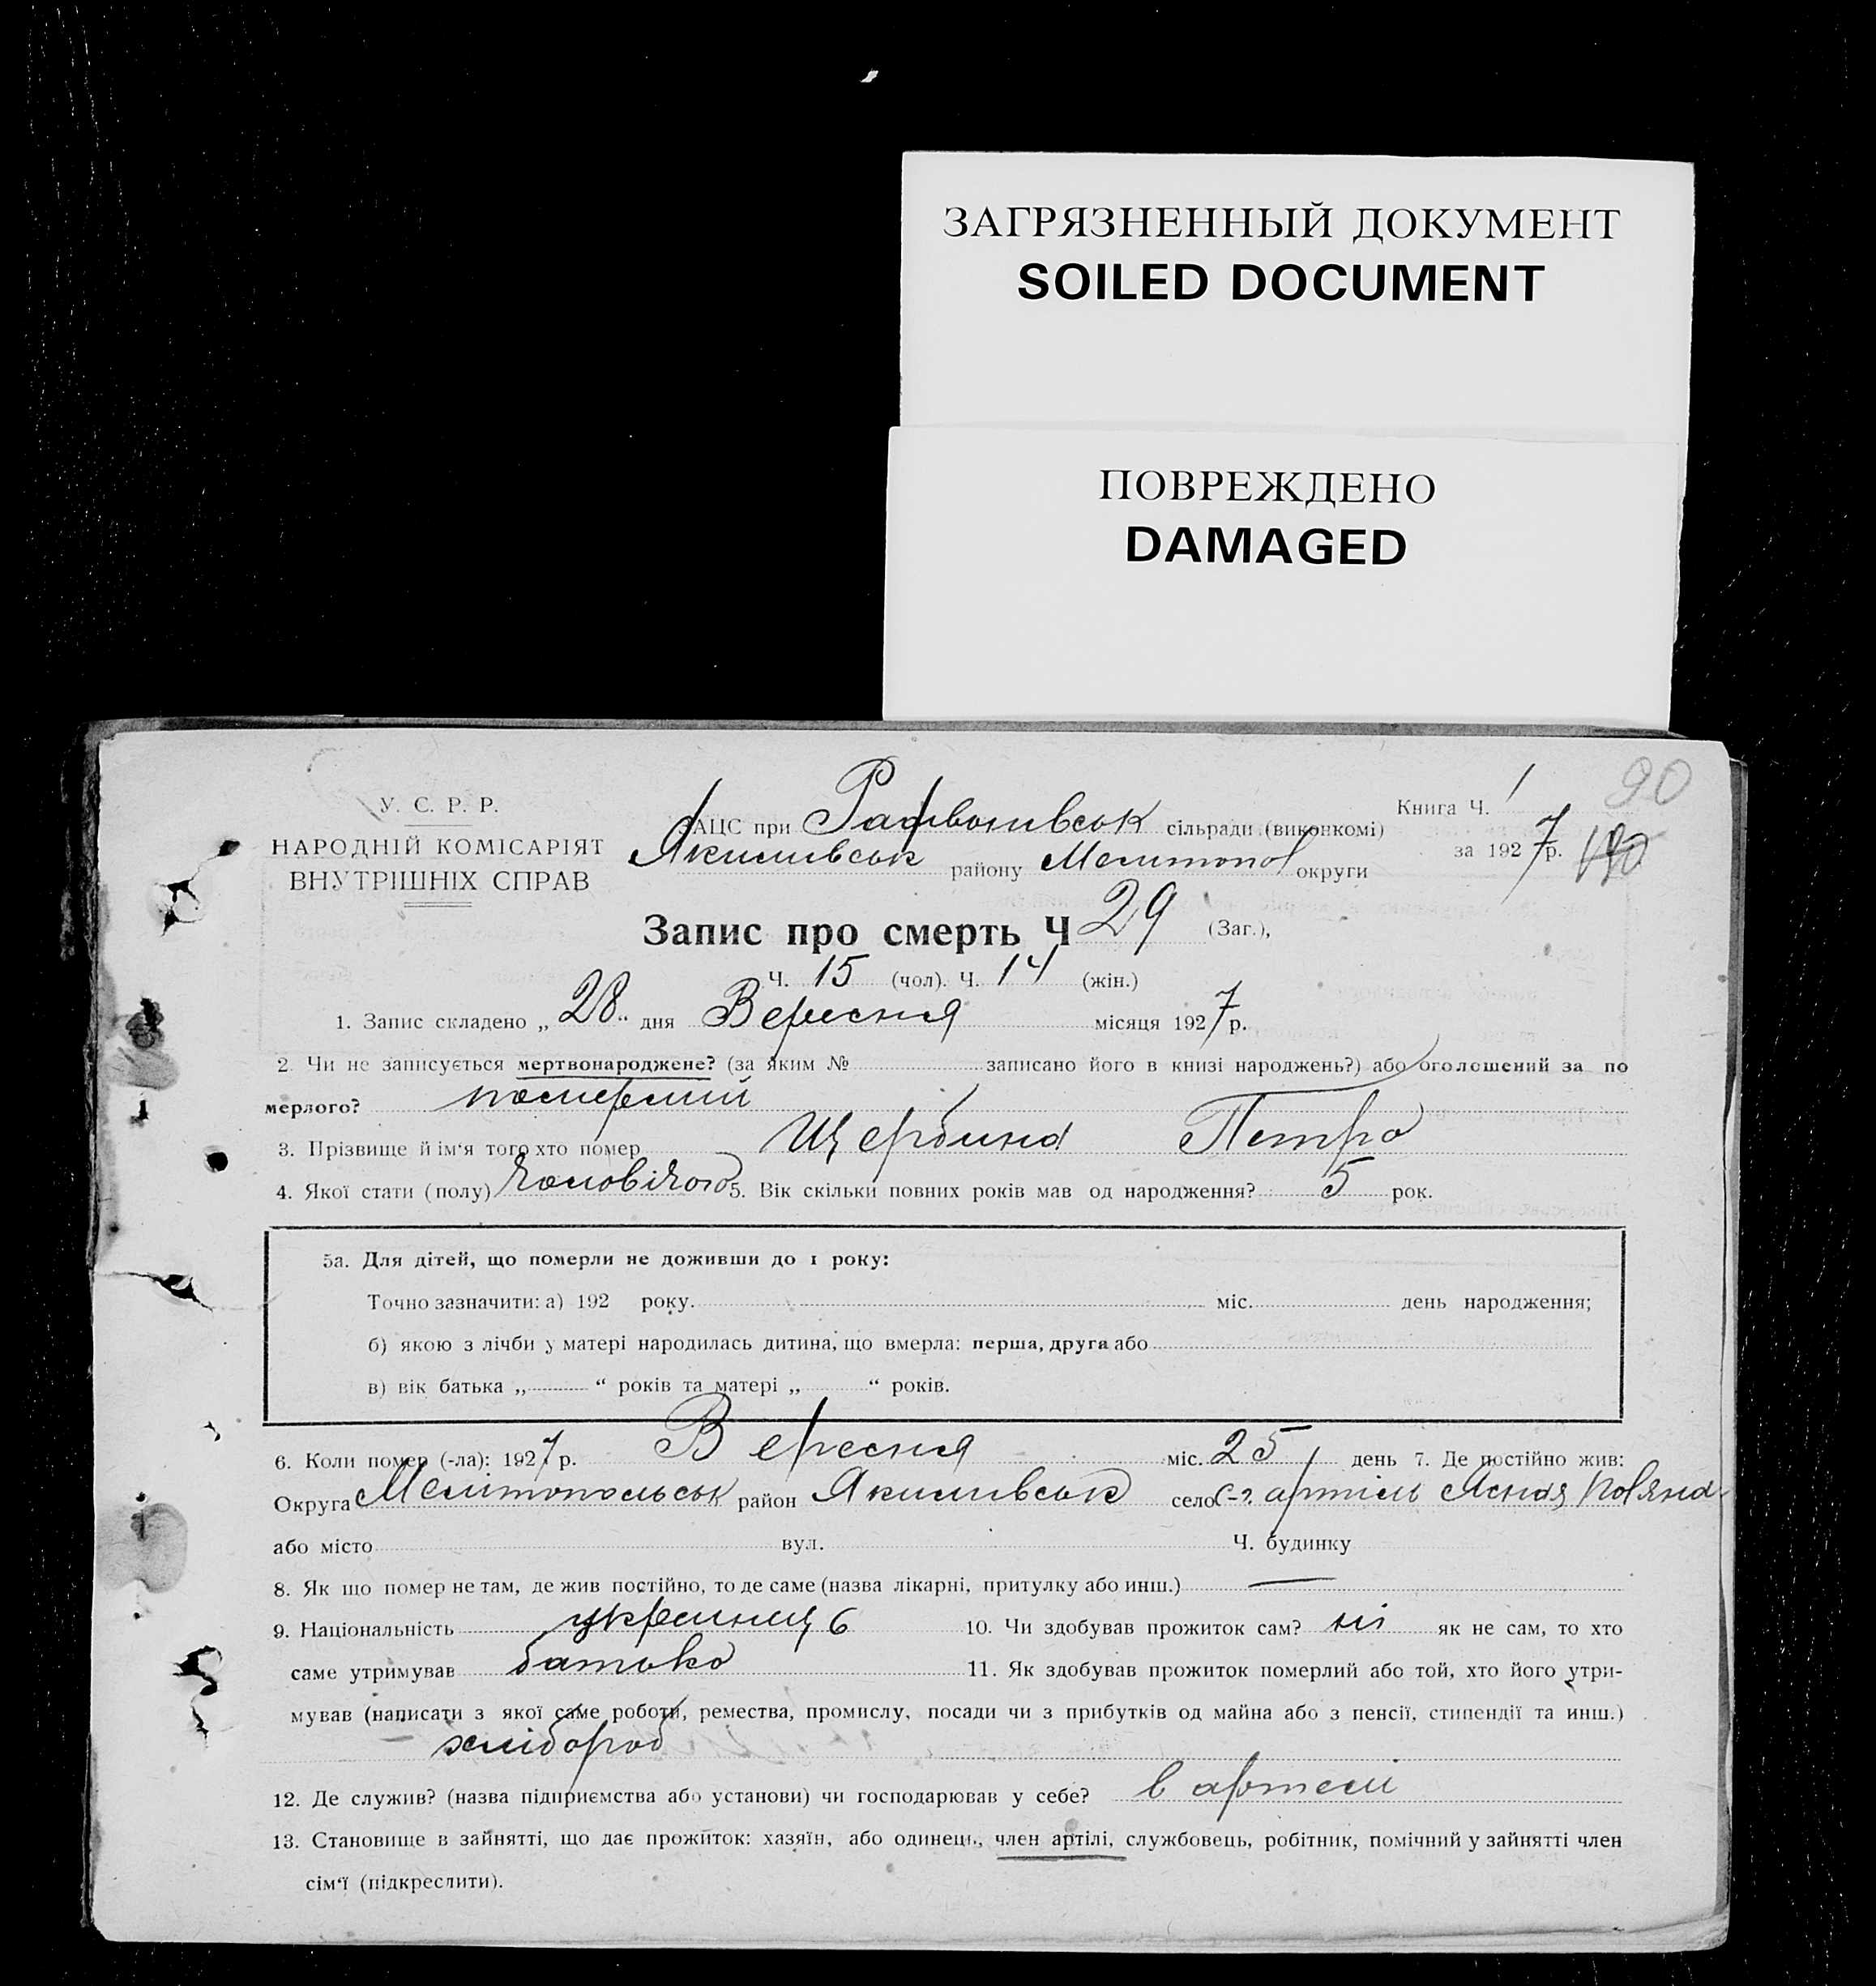 ЗАГРЯЗНЕННЫЙ ДОКУМЕНТ
SOILED DOCUMENT
ПОВРЕЖДЕНО
DAMAGED
90
У. С. Р. Р.
НАРОДНІЙ КОМІСАРІЯТ
ВНУТРІШНІХ СПРАВ
ЗАЦС при сільради (виконкомі)
Якимівськ району Мелитопол округи
Книга Ч. 1
за 1927 р.
Запис про смерть Ч 29 (Заг.),
Ч. 15 (чол). Ч. 14 (жін.)
1. Запис складено „28“ дня Вересня місяця 1927 р.
2. Чи не записується мертвонароджене? (за яким № записано його в книзі народжень?) або оголошений за по
мерлого? померлий
3. Прізвище й ім‘я того хто помер Щербина Петро
4. Якої стати (полу) чоловічого 5. Вік скільки повних років мав од народження? 5 рок.
5а. Для дітей, що померли не доживши до 1 року:
Точно зазначити: а) 192 року. міс. день народження;
б) якою з лічби у матері народилась дитина, що вмерла: перша, друга або
в) вік батька „ “ років та матері „ “ років.
6. Коли помер (-ла): 1927 р. Вересня міс. 25 день 7. Де постійно жив:
Округа Мелітопольськ район Якимівськ село артіль Ясная Поляна
або місто вул. Ч. будинку
8. Як що помер не там, де жив постійно, то де саме (назва лікарні, притулку або инш.) —
9. Національність українец 10. Чи здобував прожиток сам? ні як не сам, то хто
саме утримував батько 11. Як здобував прожиток померлий або той, хто його утри-
мував (написати з якої саме роботи, ремества, промислу, посади чи з прибутків од майна або з пенсії, стипендії та инш.)
хлібороб
12. Де служив? (назва підприємства або установи) чи господарював у себе? в артелі
13. Становище в зайнятті, що дає прожиток: хазяїн, або одинець, член артілі, службовець, робітник, помічний у зайнятті член
сім‘ї (підкреслити).